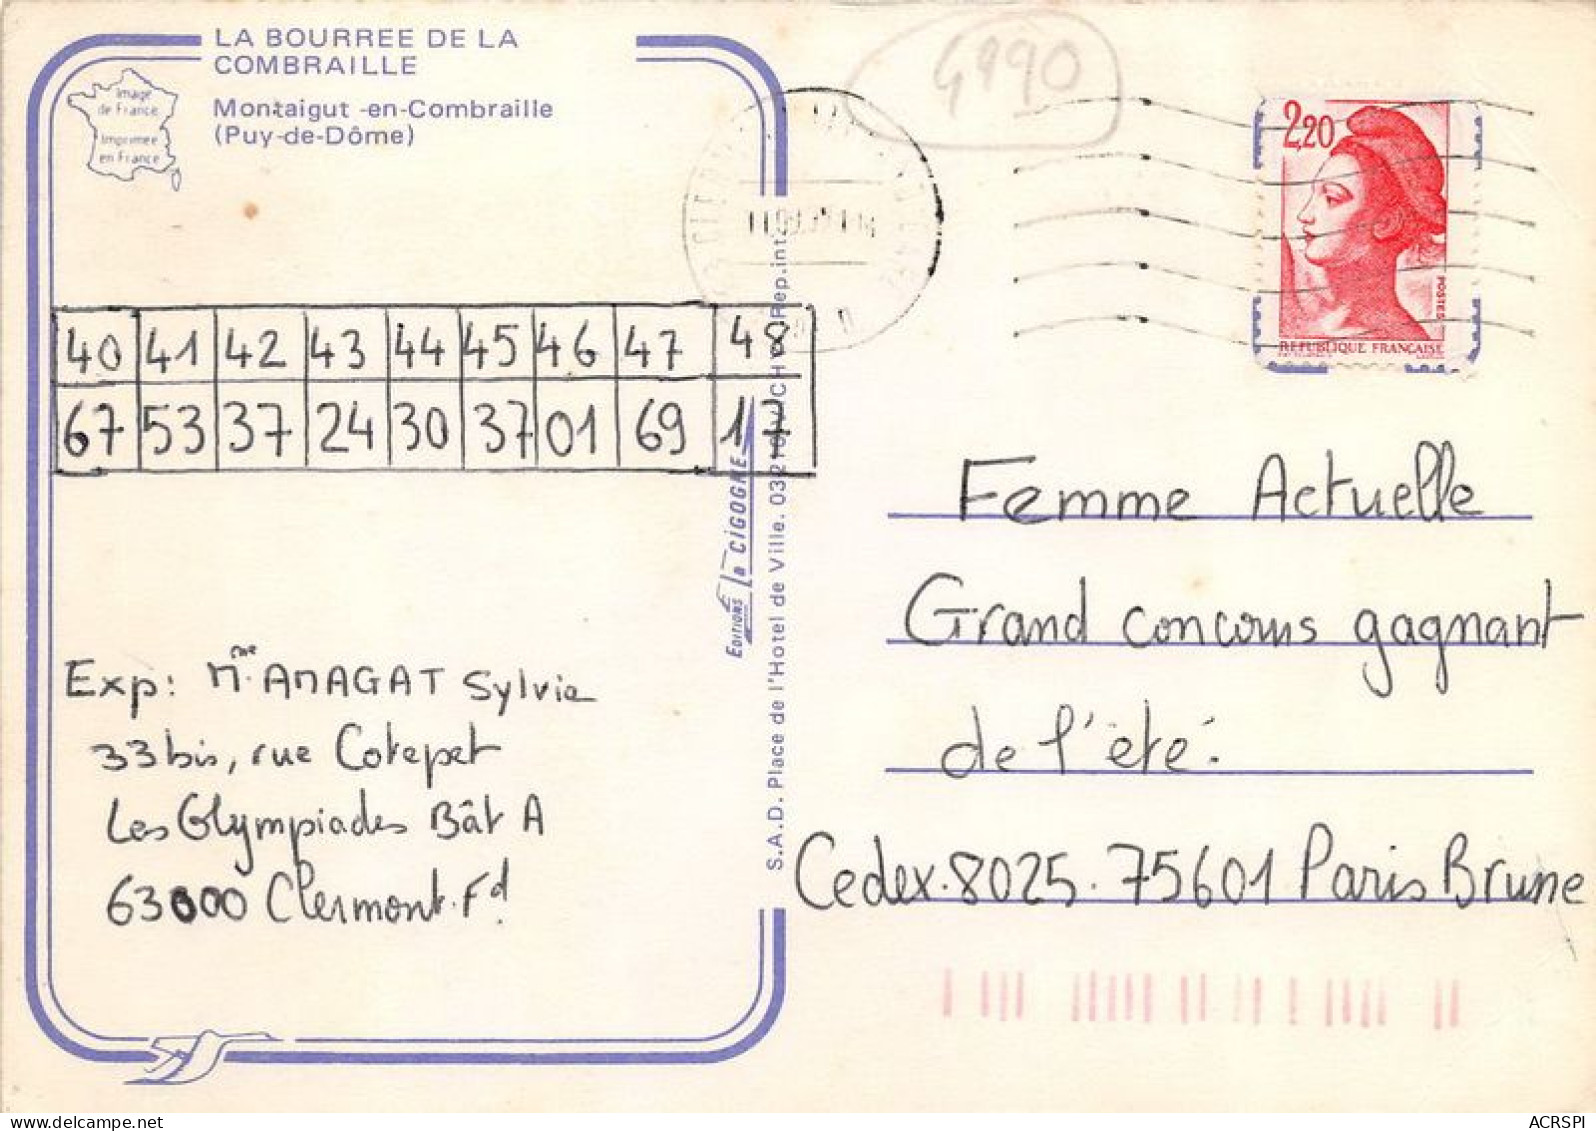 LA BOURREE DE LA
COMBRAILLE
Montaigut -en-Combraille
(Puy-de-Dôme)
Image
de France
Imprimée
en France
4990
2,20
POSTES
REPUBLIQUE FRANÇAISE
40 41 42 43 44 45 46 47 48
67 53 37 24 30 37 01 69 17
Exp: Mme AMAGAT Sylvie
33 bis, rue Cotepet
Les Olympiades Bât A
63000 Clermont.Fd
EDITIONS La CIGOGNE
S.A.D. Place de l'Hotel de Ville. VICHY Rep.int.
Femme Actuelle
Grand concours gagnant
de l'été.
Cedex.8025.75601 Paris Brune
ACRSPI